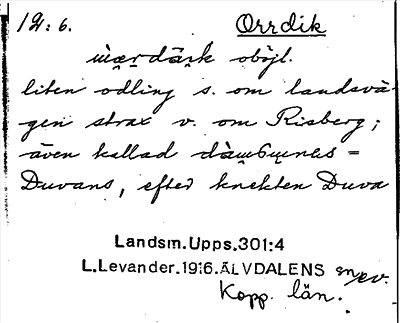 12:6. Orrdik
oböjl.
liten odling s. om landsvä-
gen strax v. om Risberg;
även kallad =
Duvans, efter knekten Duva
Landsm.Upps.301:4
L.Levander.1916.ÄLVDALENS
Kopp. län.